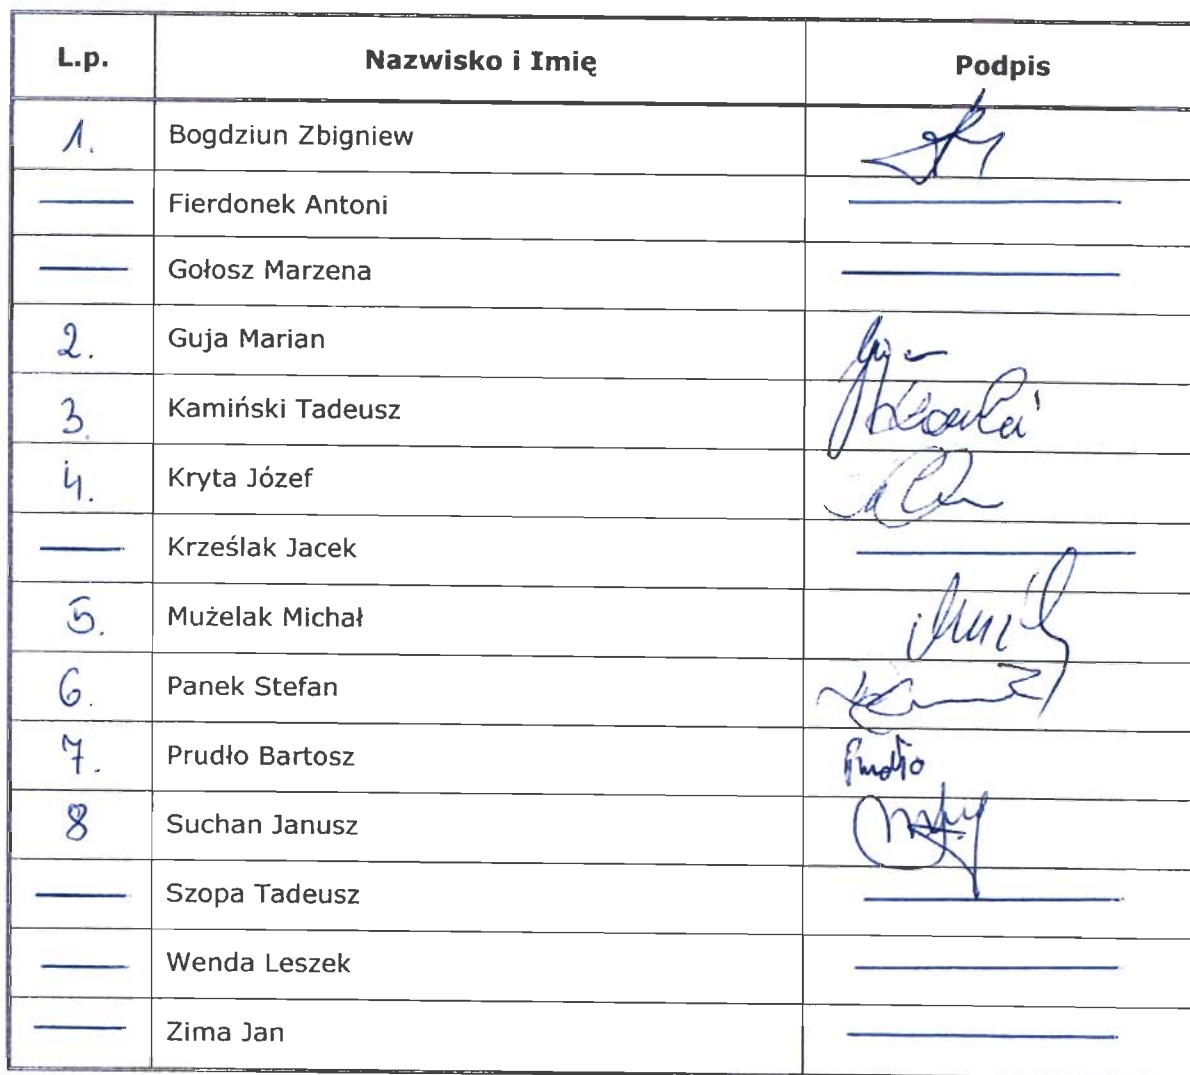 L.p. Nazwisko i Imię Podpis
1. Bogdziun Zbigniew
Fierdonek Antoni
Gołosz Marzena
2. Guja Marian
3. Kamiński Tadeusz
4. Kryta Józef
Krześlak Jacek
5. Mużelak Michał
6. Panek Stefan
7. Prudło Bartosz Prudło
8 Suchan Janusz
Szopa Tadeusz
Wenda Leszek
Zima Jan